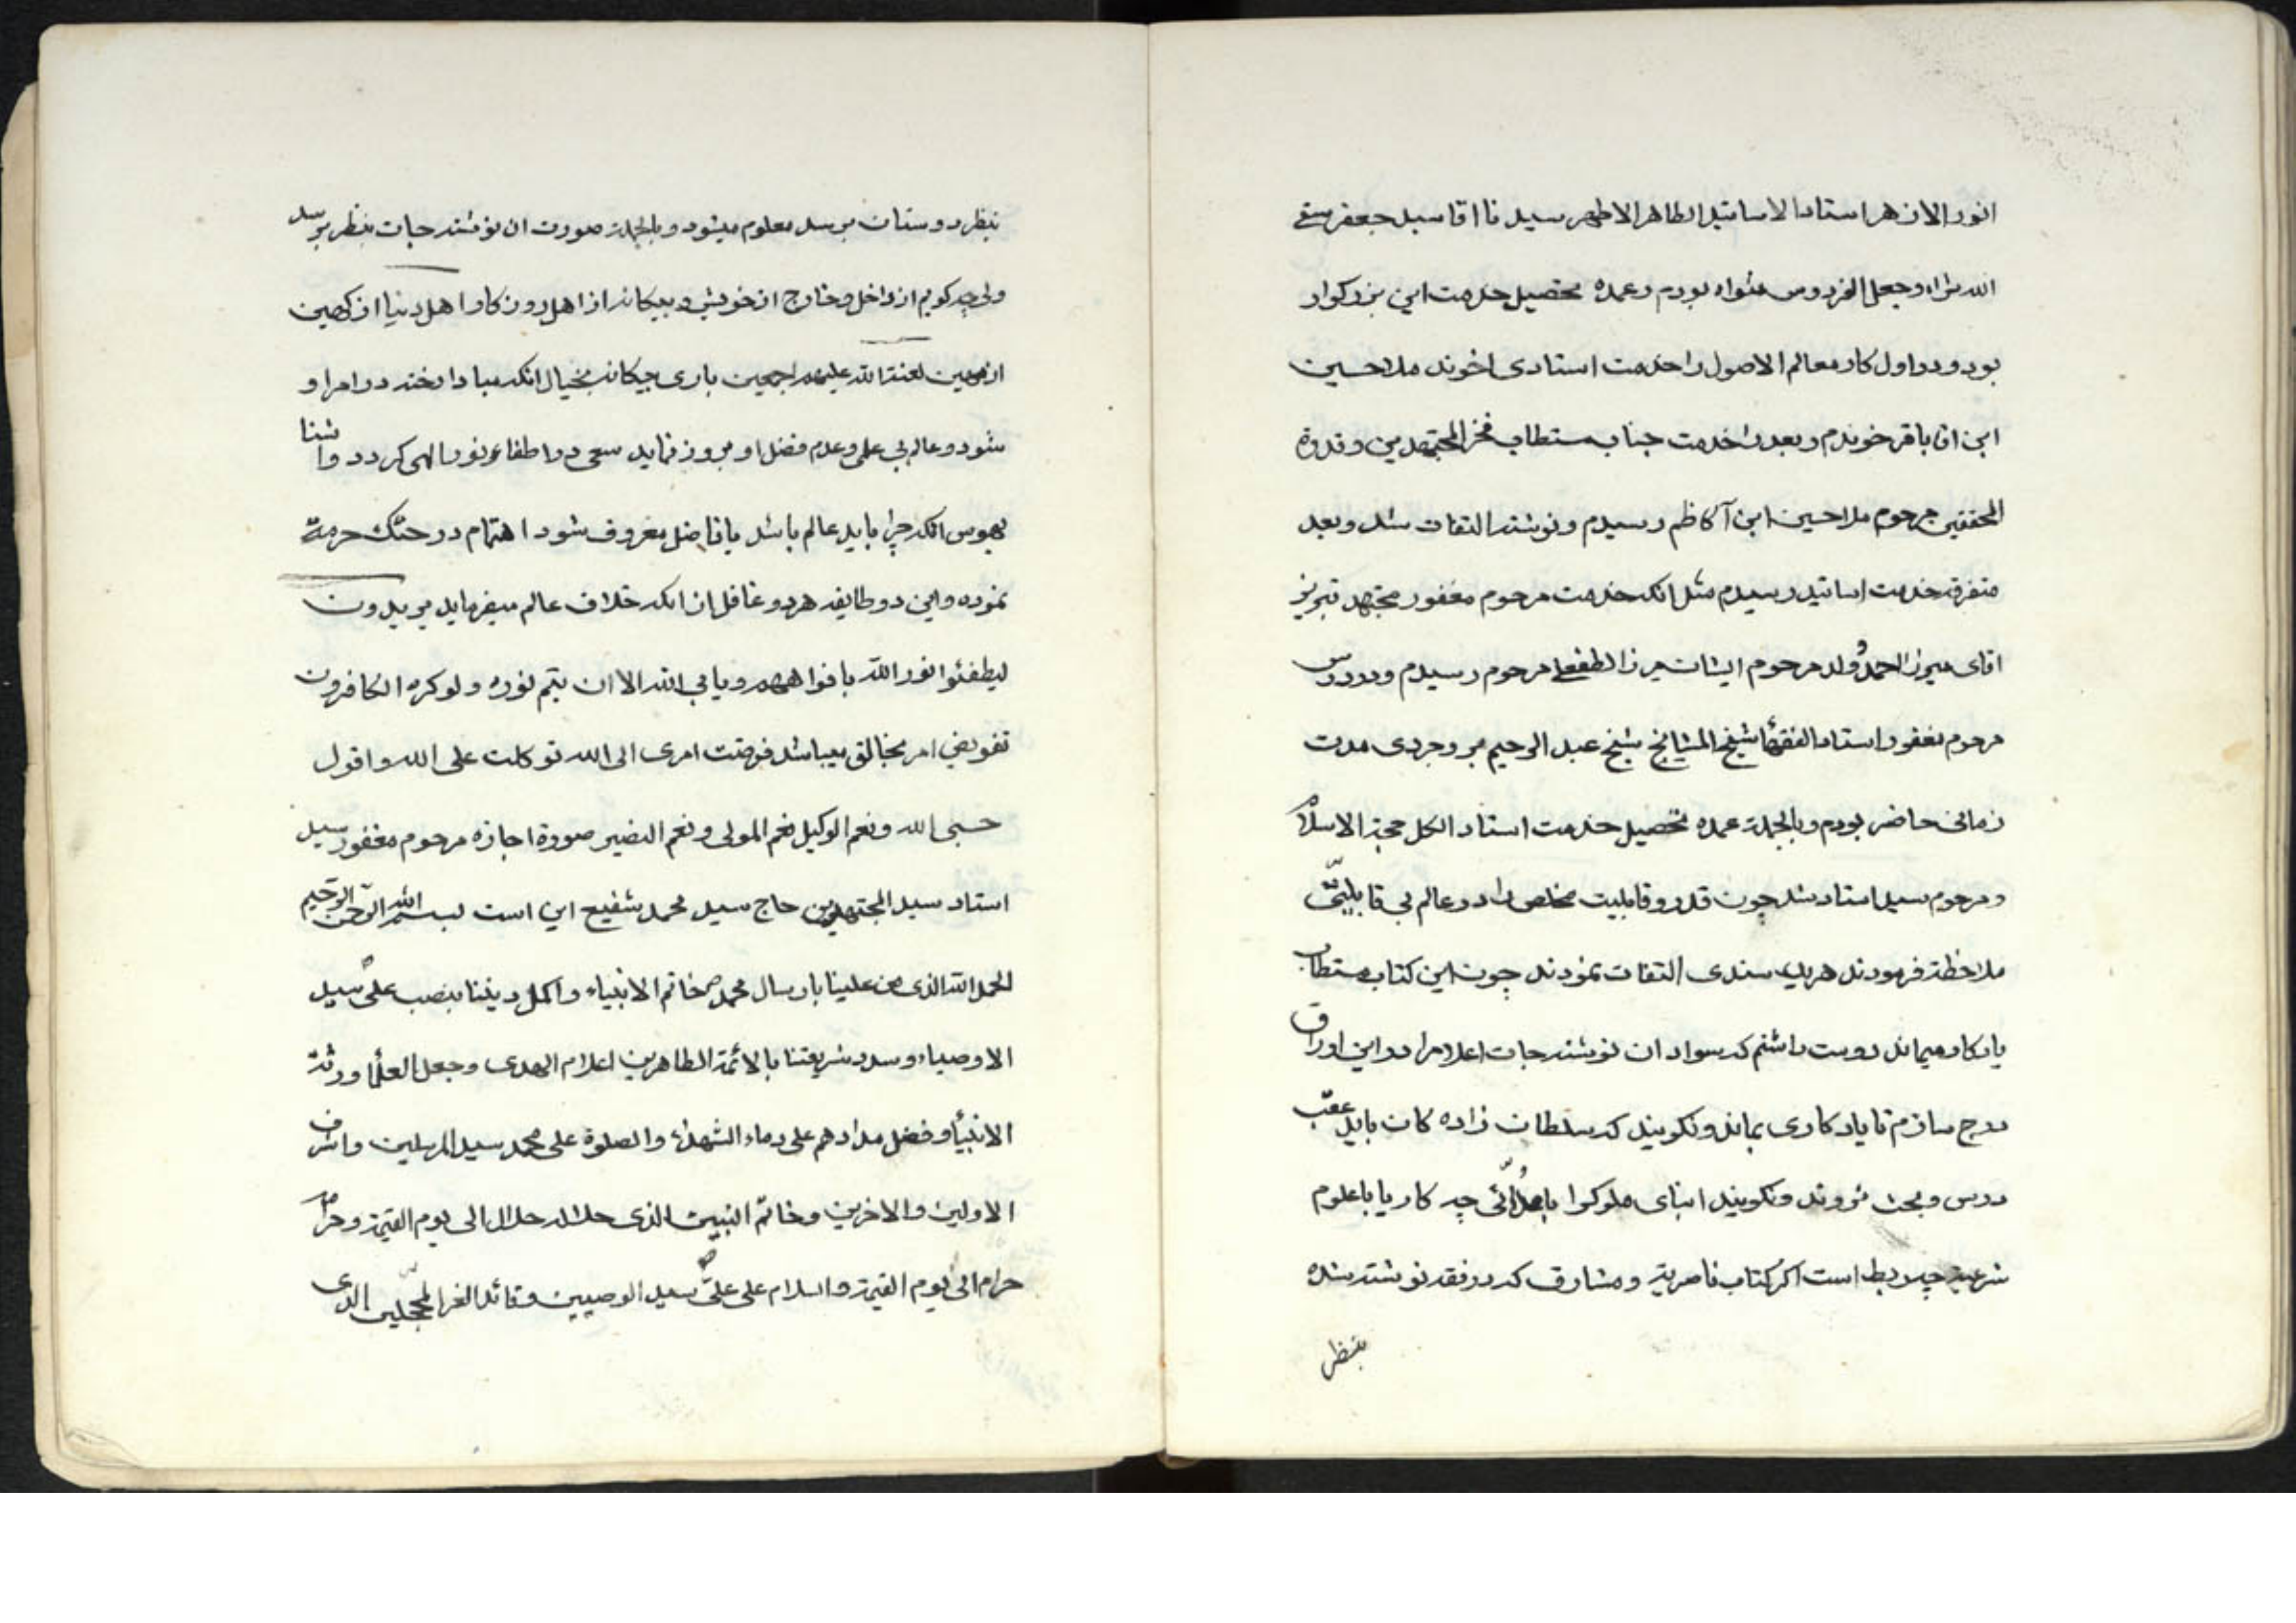 انور الازهر استاد الاساتید الطاهر الاطهر سیدنا اقا سید جعفر سقی
الله ثراه وجعل الفردوس مثواه بودم وعمده تحصیل خدمت این بزرکوار
بود ودر اول کار معالم الاصول را خدمت استادی اخوند ملا حسین
ابن اقا باقر خوندم وبعد را خدمت جناب مستطاب فخر المجتهدین وقدوة
المحققین مرحوم ملا حسین ابن آکاظم رسیدم ونوشته التفات شد وبعد
متفرقه خدمت اساتید رسیدم مثل انکه خدمت مرحوم مغفور مجتهد تبریز
اقای میرزا احمد وولد مرحوم ایشان میرزا لطفعلی مرحوم رسیدم ودر درس
مرحوم مغفور استاد الفقهاء شیخ المشایخ شیخ عبد الرحیم بروجردی مدت
زمانی حاضر بودم وبالجملة عمده تحصیل خدمت استاد الکل حجة الاسلام
ومرحوم سید استاد شد چون قدر وقابلیت مخلص را در عالم بی قابلیتی
ملاحظه فرمودند هریک سندی التفات نمودند چون این کتاب مستطاب
یادکار میماند دوست داشتم که سواد ان نوشته جات اعلام را در این اوراق
درج سازم تا یادکاری بماند ونکویند که سلطان زاده کان باید عقب
درس وبحث نروند ونکویند ابنای ملوک را با ملائی چه کار یا با علوم
شرعیة چه ربط است اکر کتاب ناصریة ومشارق که در فقه نوشته شده
بنظر
بنظر دوستان برسد معلوم میشود وبالجملة صورت ان نوشته جات بنظر برسد
ولی چه کویم از داخل وخارج از خویش وبیکانه از اهل روزکار واهل دنیا از کهین
از مهین لعنة الله علیهم اجمعین باری بیکانه بخیال انکه مبادا رخنه در امر او
شود وعالم بی علمی وعدم فضل او بروز نماید سعی در اطفاء نور الهی کردد واشنا
بهوس انکه چرا باید عالم باشد یا فاضل معروف شود اهتمام در هتک حرمة
نموده واین دو طایفه هردو غافل از انکه خلاق عالم میفرماید یریدون
لیطفئوا نور الله بافواههم ویابی الله الا ان یتم نوره ولو کره الکافرون
تفویض امر بخالق میباشد فوضت امری الی الله توکلت علی الله واقول
حسبی الله ونعم الوکیل نعم المولی ونعم النصیر صورة اجازه مرحوم مغفور سید
استاد سید المجتهدین حاج سید محمد شفیع این است بسم الله الرحمن الرحیم
الحمد لله الذی من علینا بارسال محمد ص خاتم الانبیاء واکمل دیننا بنصب علی سید
الاوصیاء وسدد شریعتنا بالائمة الطاهرین اعلام الهدی وجعل العلماء ورثة
الانبیاء وفضل مدادهم علی دماء الشهداء والصلوة علی محمد سید المرسلین واشرف
الاولین والاخرین وخاتم النبیین الذی حلاله حلال الی یوم القیمة وحرامه
حرام الی یوم القیمة والسلام علی علی سید الوصیین وقائد الغر المحجلین الذی